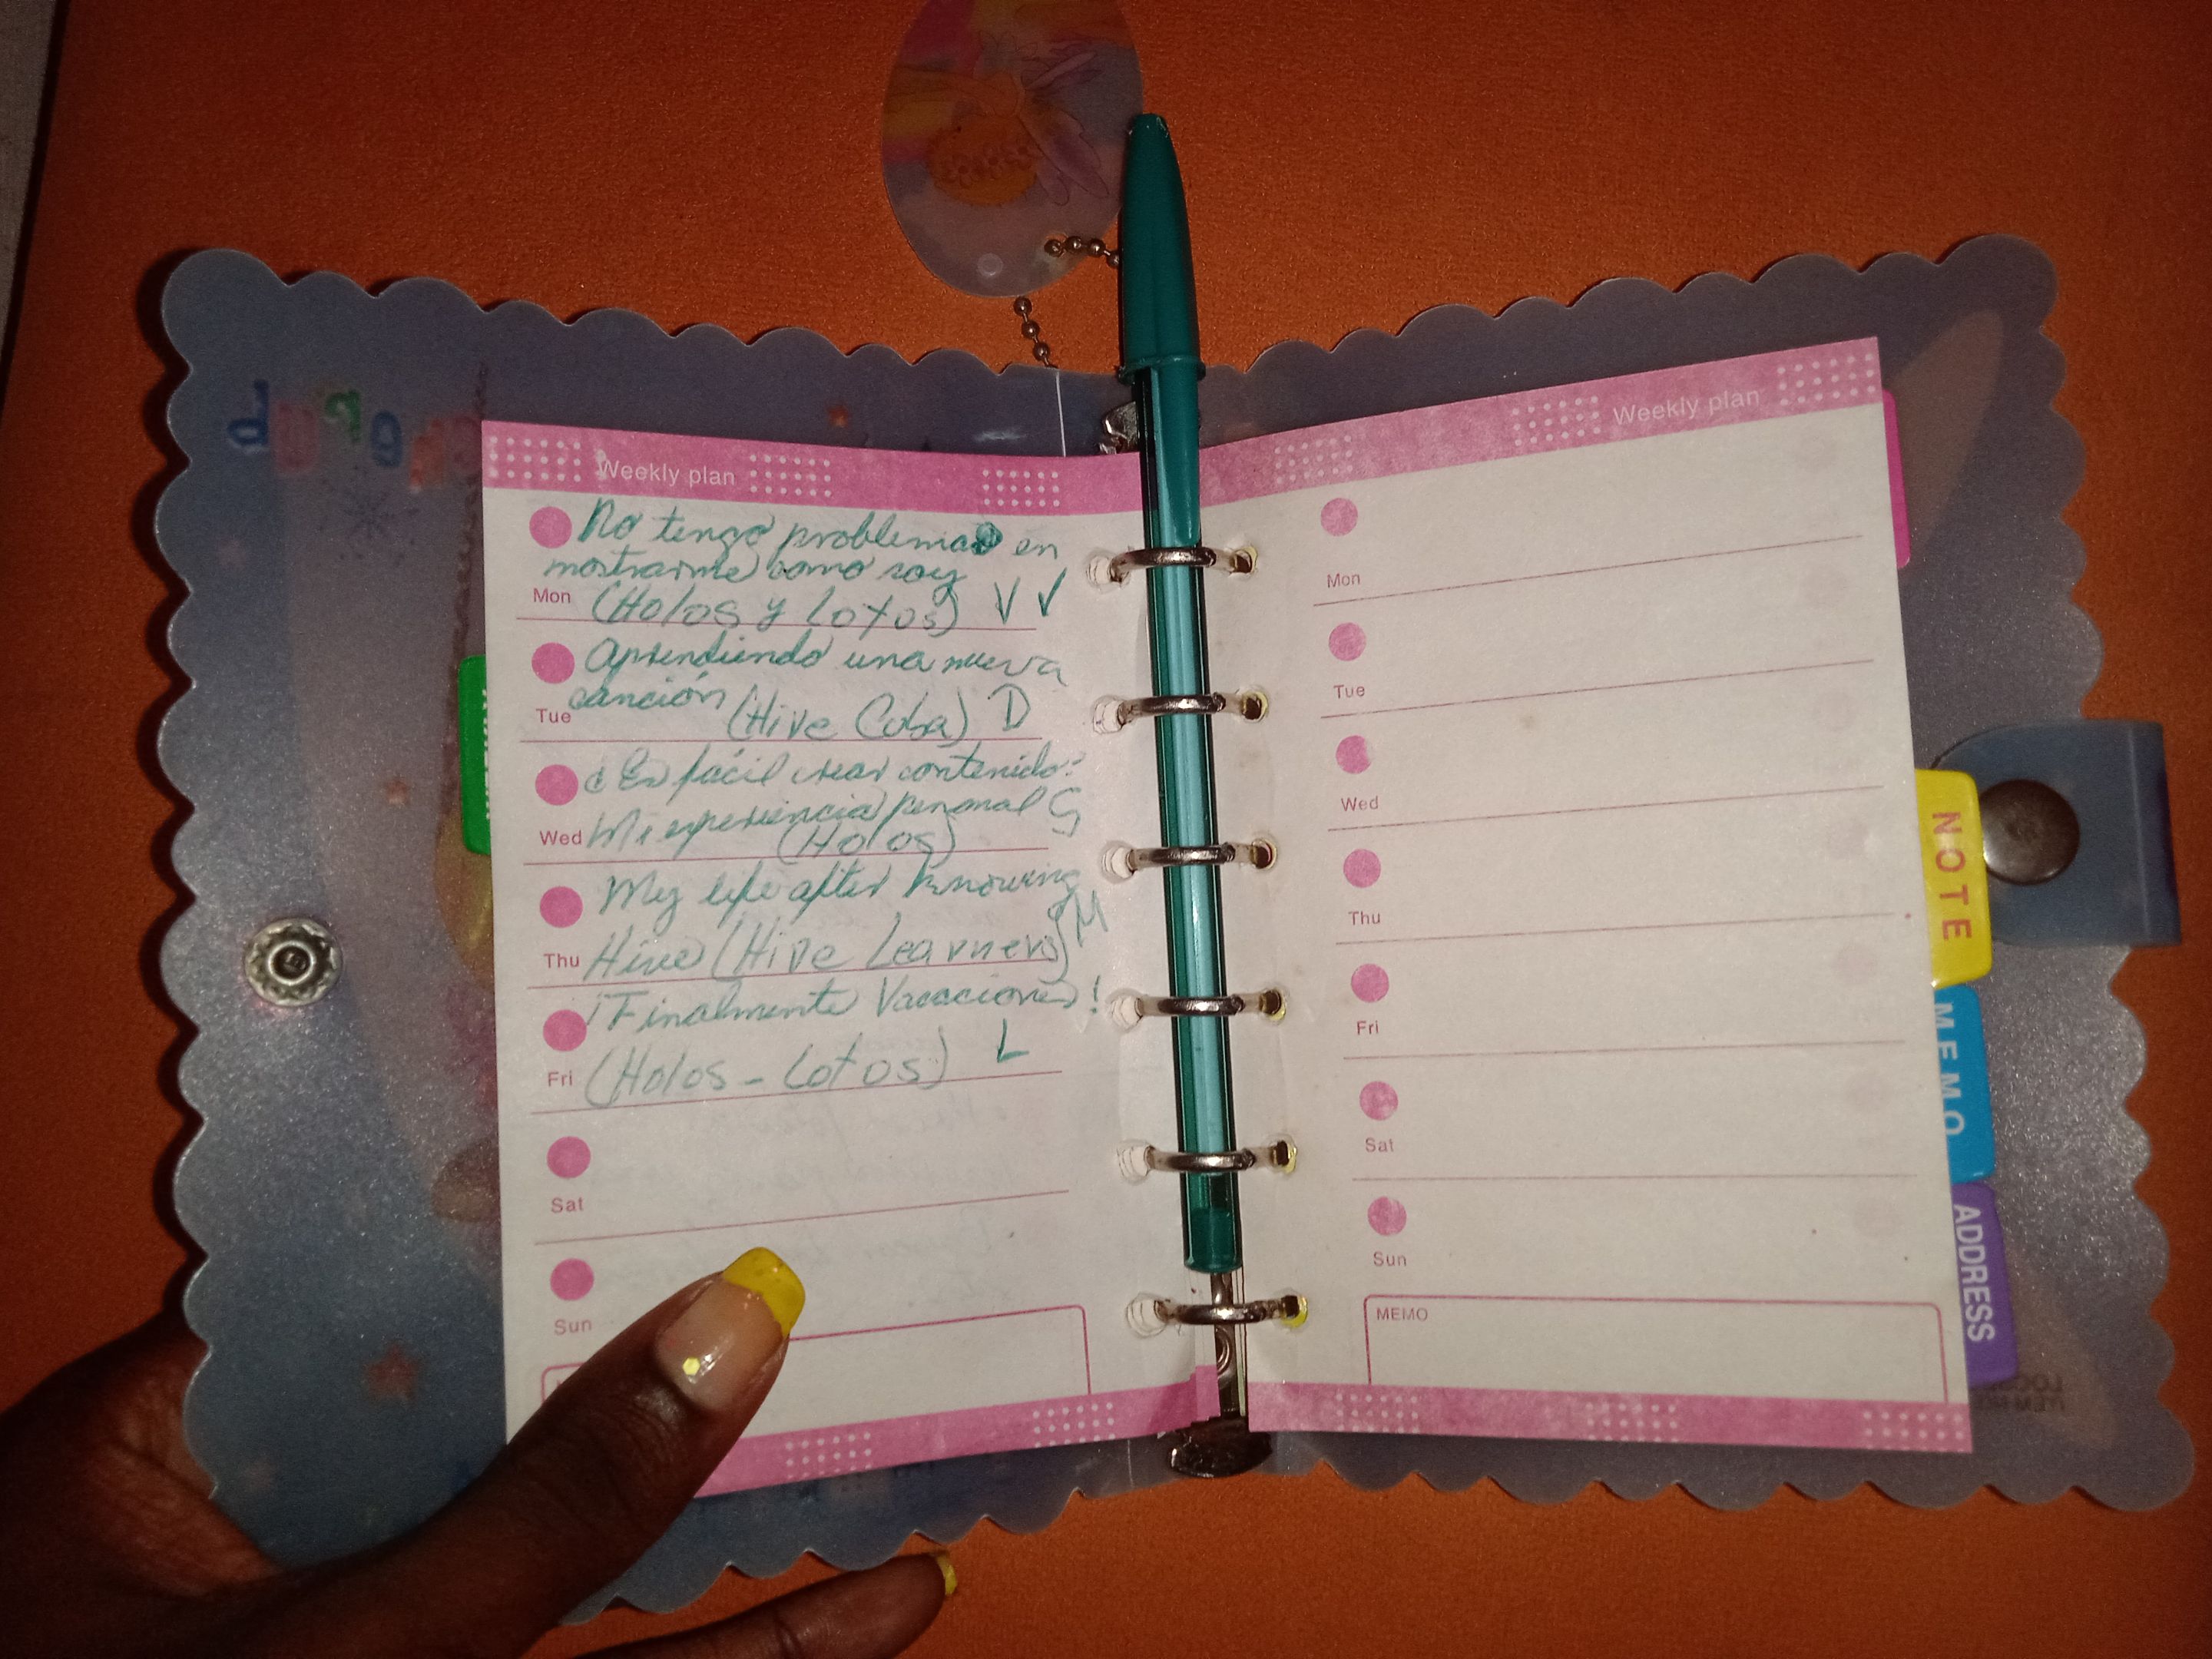 Weekly plan
No tengo problemas en
mostrarme como soy
Mon (Holos y Lotos) V ✓
Aprendiendo una nueva
canción
Tue (Hive Cuba) D
¿Es fácil crear contenido?
Mi experiencia personal G
Wed (Holos)
My life after knowing
Thu Hive (Hive Learners) M
¡Finalmente Vacaciones!
Fri (Holos - Lotos) L
Sat
Sun
Weekly plan
Mon
Tue
Wed
Thu
Fri
Sat
Sun
MEMO
NOTE
MEMO
ADDRESS